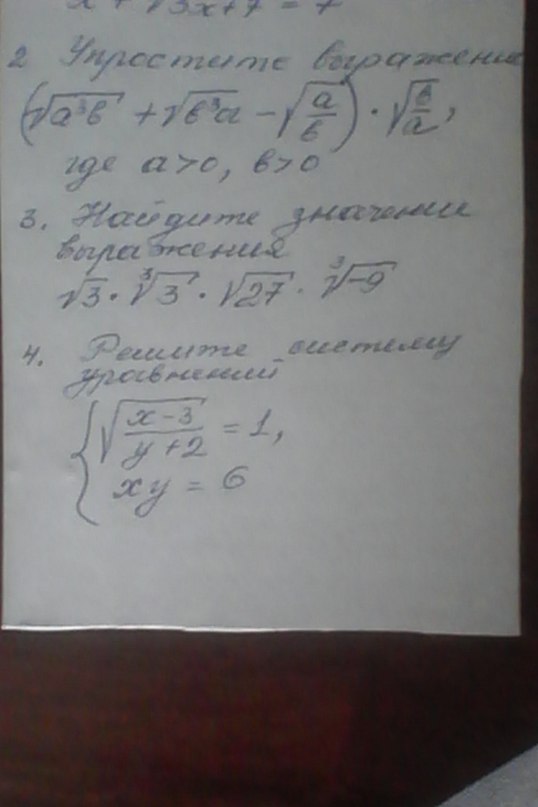 x + √3x+7 = 7
2 Упростите выражение
(√a³b + √b³a − √a/b) · √b/a,
где a>0, b>0
3. Найдите значении
выражения
√3 · ³√3 · √27 · ³√-9
4. Решите систему
уравнений
{ √x-3/y+2 = 1,
xy = 6